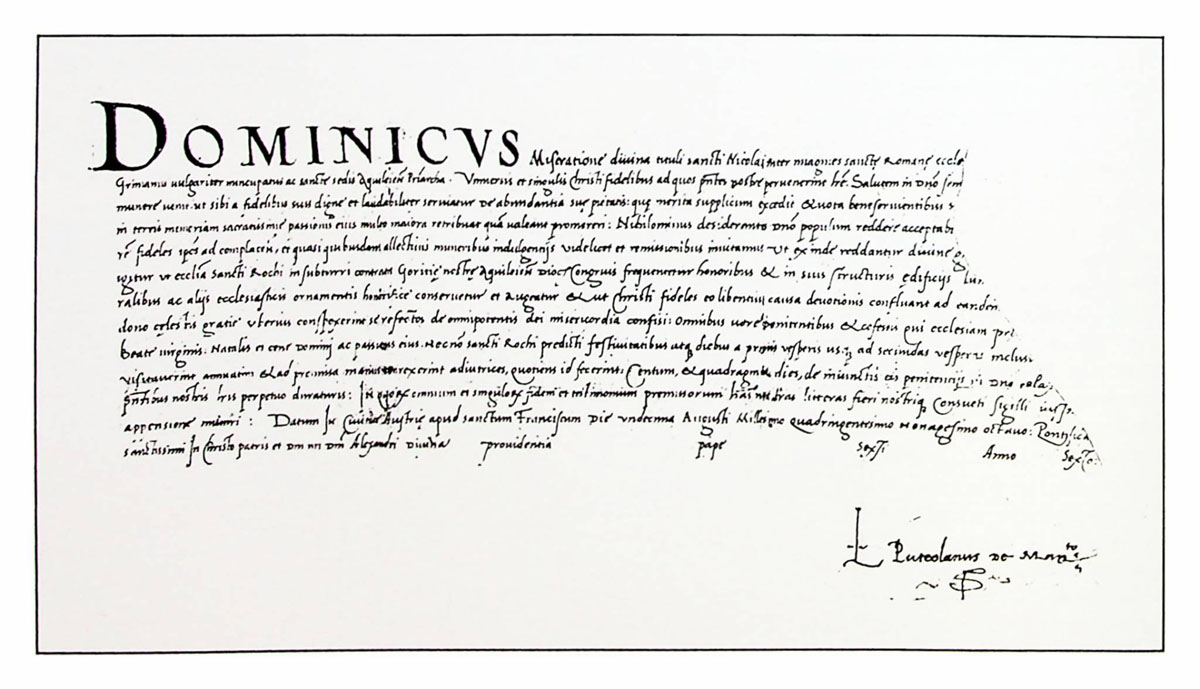 DOMINICVS Miseratione divina tituli sancti Nicolai inter magines sancte Romane eccle
Grimanus vulgariter nuncupatus ac sancte sedis Aquileien Priarcha. Universis et singulis Christi fidelibus ad quos pntes nostre pervenerint Salutem in Dno sem
munere venit ut sibi a fidelibus suis digne et laudabiliter serviatur de abundantia sue pietatis: que merita supplicum excedit & vota bene servientibus
in terris memoriam sacratissime passionis eius multo maiora retribuat quam valeant promereri: Nihilominus desiderantes Dno populum reddere acceptabi
fideles ipsos ad complacen ei quasi quibusdam allectivis muneribus indulgencijs videlicet et remissionibus invitamus Ut exinde reddantur divine
ut ecclia Sancti Rochi in subturri contrata Goritie nostre Aquileien Dioc Congruis frequentetur honoribus & in suis structuris edificijs lu
ralibus ac alijs ecclesiasticis ornamentis honorifice conservetur et Augeatur & ut Christi fideles eo libentius causa devotionis confluant ad eanden
dono celestis gratie uberius conspexerint se refectos de omnipotentis dei misericordia confisi: Omnibus vere penitentibus & cofessis qui ecclesiam pre
Beate virginis. Natalis et cene Domini ac passionis eius. Necno sancti Rochi predicti festivitatibus diebus a primis vesperis ad secundas vesperas inclusi
visitaverint annuatim & ad premissa manus porrexerint adiutrices, quotiens id fecerint: Centum, & quadraginta dies, de iniunctis eis penitencijs in Dno rela
pntibus nostris lris perpetuo duraturis: In quorum omnium et singulorum fidem et testimonium premissorum has nostras litteras fieri nostrique Consueti sigilli
appensione muniri: Datum In Civitate Austrie apud sanctum Franciscum Die undecima Augusti Millesimo quadringentesimo nonagesimo octavo: Pontifica
sanctissimi In Christo patris et Dm nri Dm Alexandri Divina providentia pape sexti Anno Sexto
L Puteolanus de